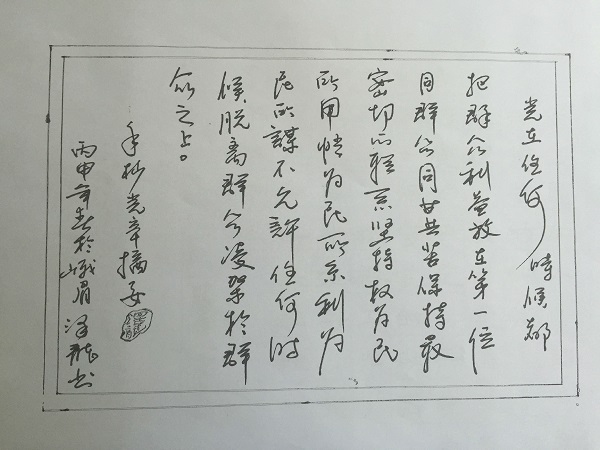 党在任何時候都
把群众利益放在第一位
同群众同甘共苦保持最
密切的联系坚持权为民
所用情为民所系利为
民所謀不允許任何时
候脱离群众凌架於群
众之上。
手抄党章摘要
丙申年春於峨眉泽龙书